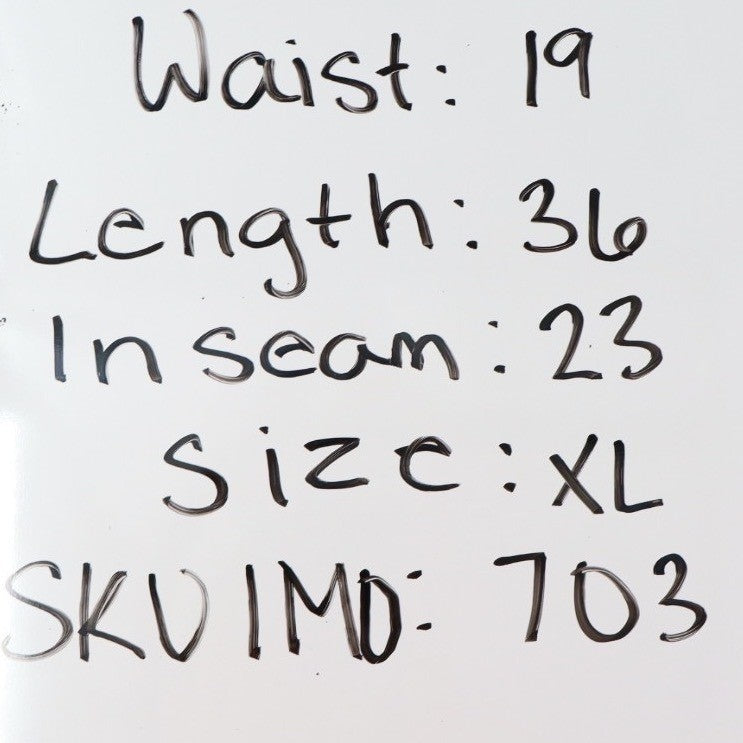 Waist: 19
Length: 36
Inseam: 23
Size: XL
SKU IMD: 703